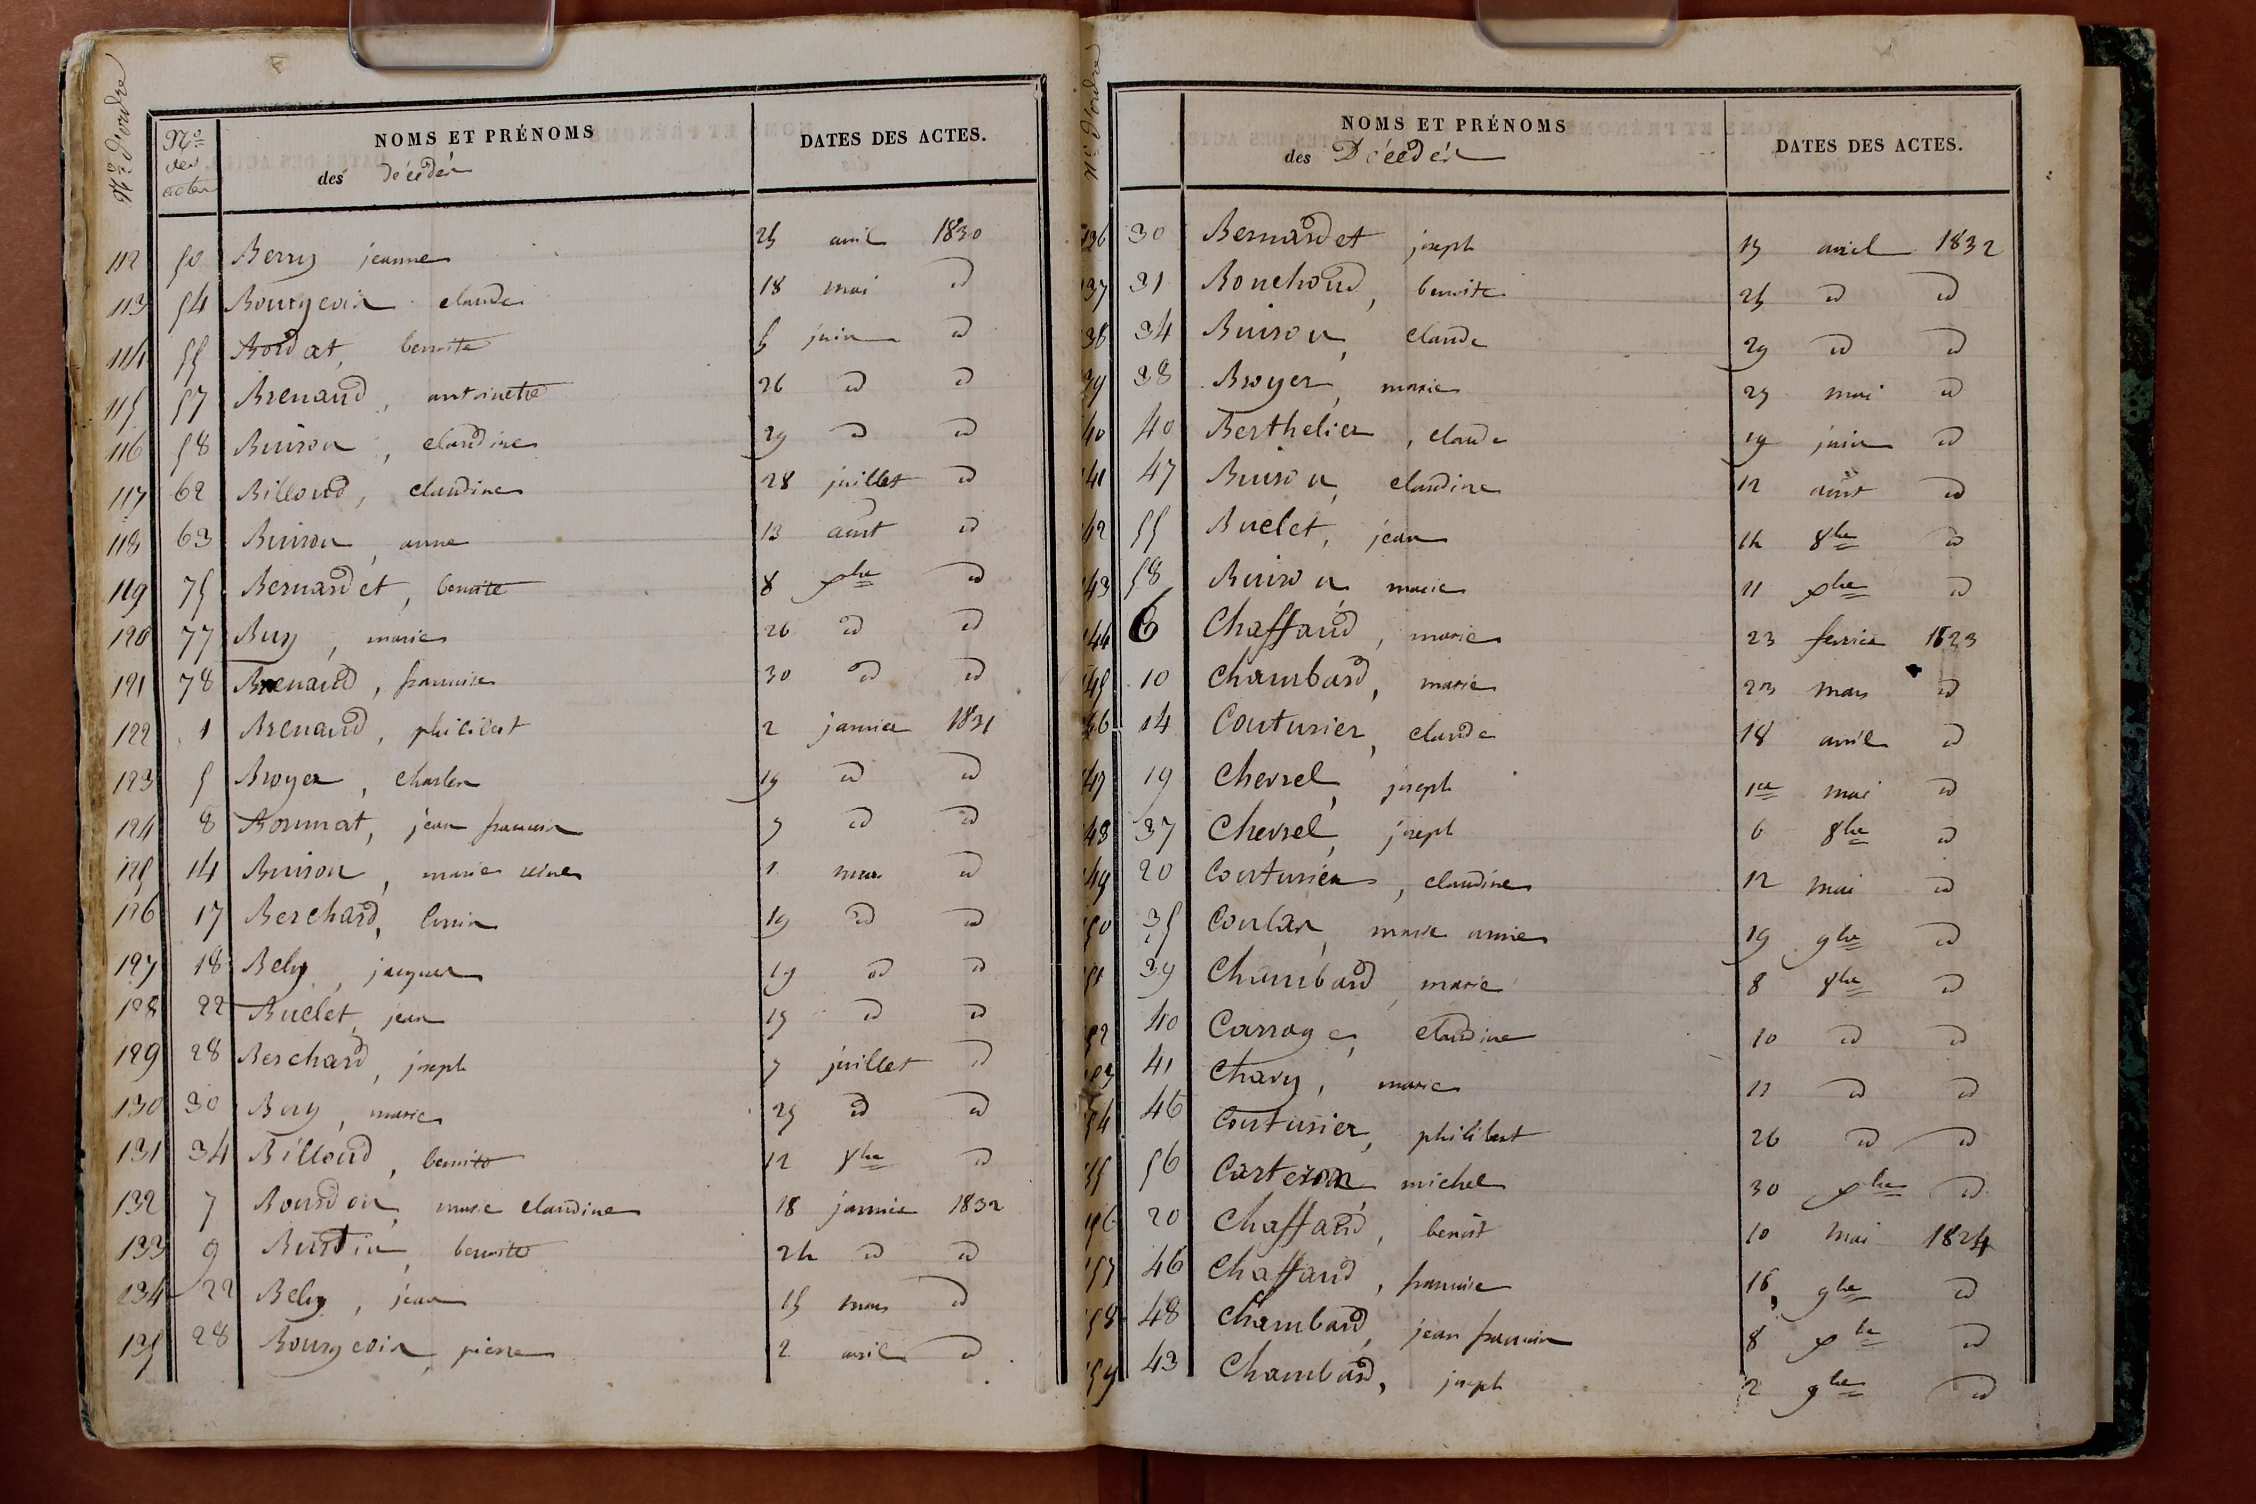 Nos d'ordre
Nos des actes NOMS ET PRÉNOMS DATES DES ACTES.
des Décédés
112 50 Berry jeanne 25 avril 1830
113 54 Bourgeois claude 18 mai id
114 55 Bordat, benoite 5 juin id
115 57 Brenaud, antoinette 26 id id
116 58 Buison, claudine 29 id id
117 62 Billoud, claudine 28 juillet id
118 63 Buison, anne 13 aout id
119 75 Bernardet, benoite 8 xbre id
120 77 Buy, marie 26 id id
121 78 Brenaud, francoise 30 id id
122 1 Brenaud, philibert 2 janvier 1831
123 5 Broyer, charles 19 id id
124 8 Bonnat, jean francois 7 id id
125 14 Buison, marie reine 1 mars id
126 17 Berchard, louis 19 id id
127 18 Bely, jacques 19 id id
128 22 Buclet, jean 15 id id
129 28 Berchard, joseph 7 juillet id
130 30 Buy, marie 25 id id
131 34 Billoud, benoite 12 8bre id
132 7 Bourdon, marie claudine 18 janvier 1832
133 9 Burdin, benoite 24 id id
134 22 Bely, jean 15 mars id
135 28 Bourgeois, pierre 2 avril id
Nos d'ordre
NOMS ET PRÉNOMS DATES DES ACTES.
des Décédés
136 30 Bernardet joseph 13 avril 1832
137 31 Bouchoud, benoite 25 id id
38 34 Buison, claude 29 id id
39 38 Broyer, marie 25 mai id
40 40 Berthelier, claude 19 juin id
41 47 Buison, claudine 12 aout id
42 55 Buclet, jean 14 8bre id
43 58 Buison, marie 11 xbre id
144 6 Chaffaud, marie 23 fevrier 1823
145 10 Chambard, marie 23 mars id
46 14 Couturier, claude 18 avril id
147 19 Chevrel, joseph 1er mai id
48 37 Chevrel, joseph 6 8bre id
149 20 Couturier, claudine 12 mai id
50 35 Coulas, marie 19 9bre id
51 39 Chambard, marie 8 8bre id
52 40 Carrage, claudine 10 id id
153 41 Chavy, marie 11 id id
54 46 Couturier, philibert 26 id id
55 56 Carteron michel 30 xbre id
156 20 Chaffard, benoit 10 mai 1824
157 46 Chaffaud, francoise 16 9bre id
158 48 Chambard, jean francois 8 xbre id
159 43 Chambard, joseph 2 9bre id